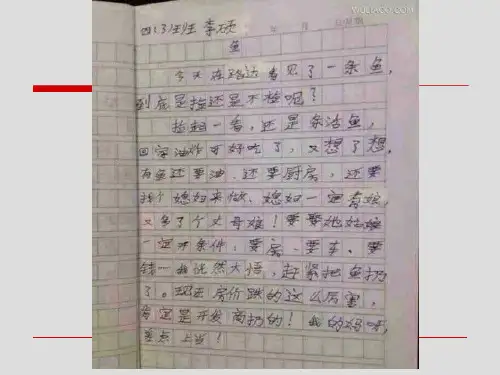 四(3)班 李硕
年 月
鱼
今天在路边看见了一条鱼，
到底是捡还是不捡呢？
捡起一看，还是条活鱼，
回家油炸可好吃了，又想了想，
有鱼还要油，还要厨房，还要
找个媳妇来做，媳妇一定有娘，
又多了个丈母娘！要娶她姑娘
一定有条件：要房、要车、要
钱…我恍然大悟，赶紧把鱼扔
了。现在房价跌的这么厉害，
肯定是开发商扔的！我的妈呀，
差点上当！